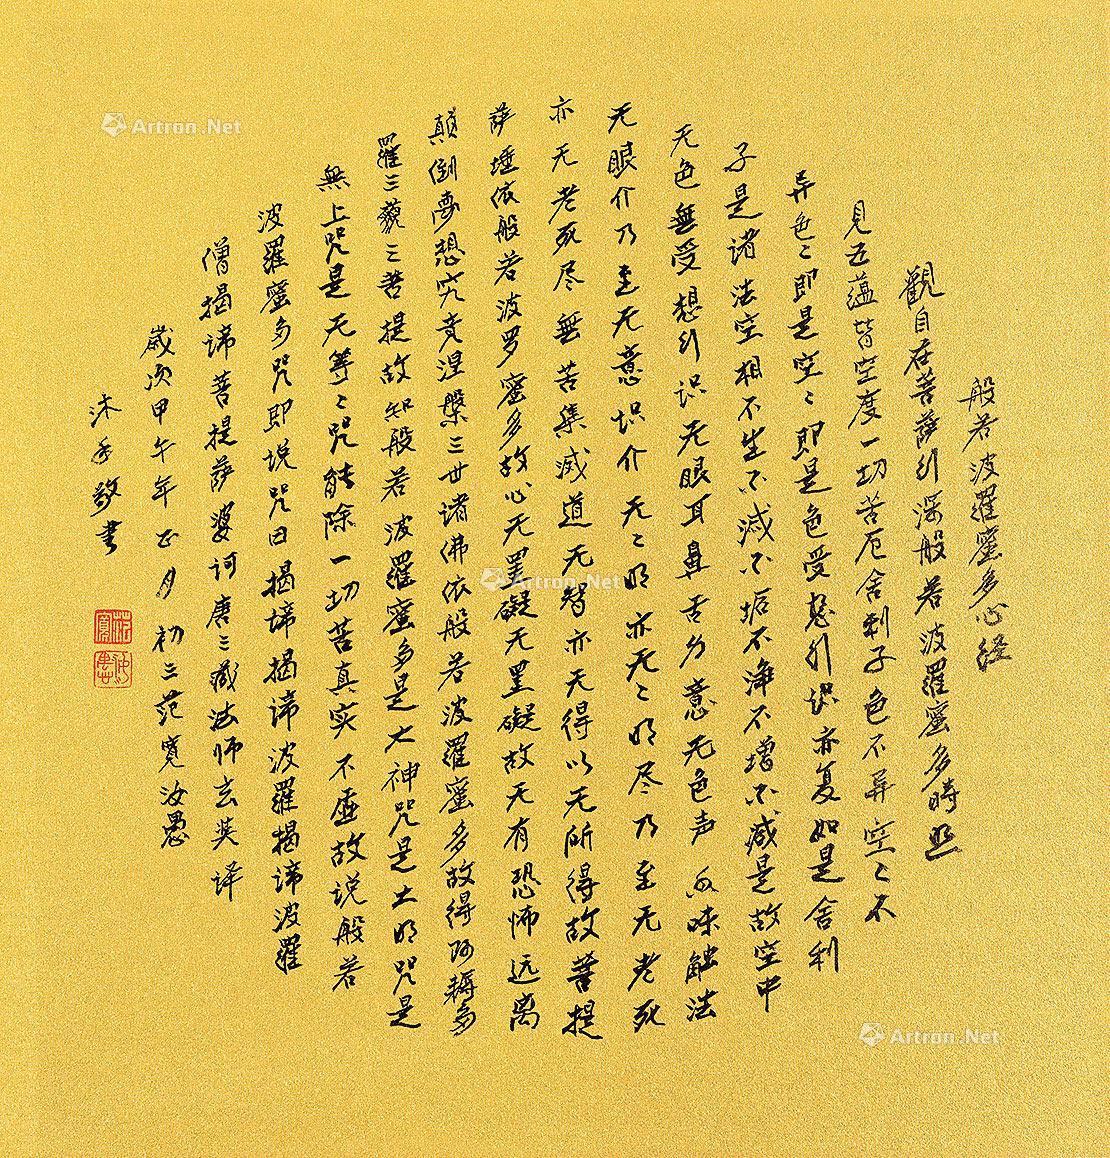 般若波羅蜜多心経
觀自在菩薩行深般若波羅蜜多時照
見五蘊皆空度一切苦厄舍利子色不異空〻不
异色〻即是空〻即是色受想行识亦复如是舍利
子是诸法空相不生不滅不垢不净不增不减是故空中
无色無受想行识无眼耳鼻舌身意无色声香味触法
无眼介乃至无意识介无〻明亦无〻明尽乃至无老死
亦无老死尽無苦集滅道无智亦无得以无所得故菩提
萨埵依般若波罗蜜多故心无罣礙无罣礙故无有恐怖远离
顛倒夢想究竟涅槃三世诸佛依般若波羅蜜多故得阿耨多
羅三藐三菩提故知般若波羅蜜多是大神咒是大明咒是
無上咒是无等〻咒能除一切苦真实不虚故说般若
波羅蜜多咒即说咒曰揭谛揭谛波羅揭谛波羅
僧揭谛菩提萨婆诃唐三藏法师玄奘译
歲次甲午年正月初三范寬汝愚
沐手敬書
Artron.Net
Artron.Net
Artron.Net